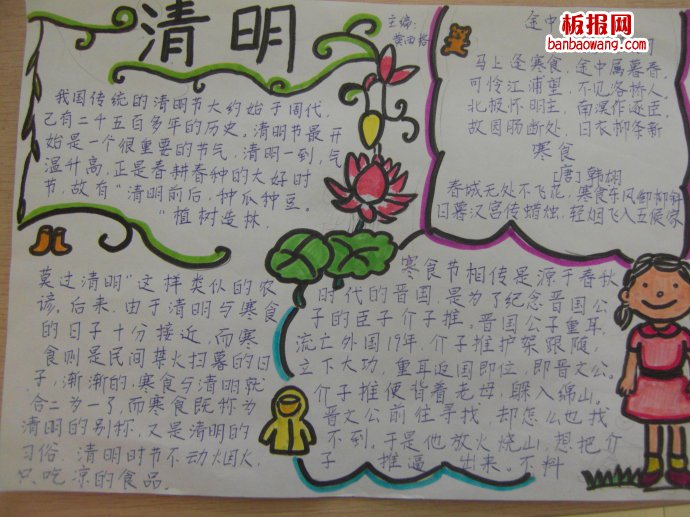 清明
主编:
板报网
banbaowang.com
我国传统的清明节大约始于周代,
已有二千五百多年的历史。清明节最开
始是一个很重要的节气,清明一到,气
温升高,正是春耕春种的大好时
节,故有“清明前后,种瓜种豆。
“植树造林,
莫过清明”这样类似的农
谚。后来,由于清明与寒食
的日子十分接近,而寒
食则是民间禁火扫墓的日
子,渐渐的,寒食与清明就
合二为一了,而寒食既称为
清明的别称,又是清明的
习俗,清明时节不动烟火,
只吃凉的食品。
途中
马上逢寒食,途中属暮春。
可怜江浦望,不见洛桥人。
北极怀明主,南溟作逐臣,
故园肠断处,日衣柳条新
寒食
[唐]韩翃
春城无处不飞花,寒食东风御柳斜
日暮汉宫传蜡烛,轻烟飞入五侯家
寒食节相传是源于春秋
时代的晋国,是为了纪念晋国公
子的臣子介子推。晋国公子重耳,
流亡外国19年,介子推护驾跟随
立下大功,重耳返国即位,即晋文公。
介子推便背着老母,躲入绵山。
晋文公前往寻找,却怎么也找
不到,于是他放火烧山,想把介
子推逼出来。不料